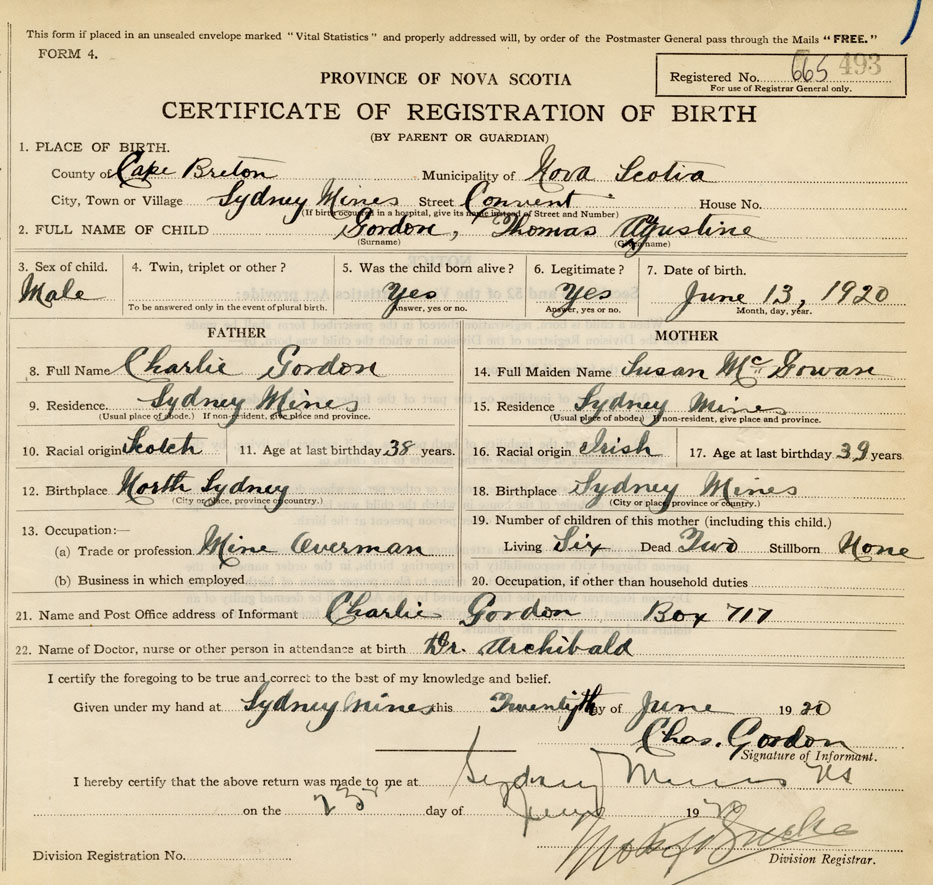 This form if placed in an unsealed envelope marked "Vital Statistics" and properly addressed will, by order of the Postmaster General pass through the Mails "FREE."
FORM 4.
Registered No. 665 493
For use of Registrar General only.
PROVINCE OF NOVA SCOTIA
CERTIFICATE OF REGISTRATION OF BIRTH
(BY PARENT OR GUARDIAN)
1. PLACE OF BIRTH.
County of Cape Breton Municipality of Nova Scotia
City, Town or Village Sydney Mines Street Convent House No.
(If birth occurred in a hospital, give its name instead of Street and Number)
2. FULL NAME OF CHILD Gordon, Thomas Agustine
(Surname) (Given name)
3. Sex of child. 4. Twin, triplet or other? 5. Was the child born alive? 6. Legitimate? 7. Date of birth.
Male Yes Yes June 13, 1920
To be answered only in the event of plural birth. Answer, yes or no. Answer, yes or no. Month, day, year.
FATHER MOTHER
8. Full Name Charlie Gordon 14. Full Maiden Name Susan McGowan
9. Residence. Sydney Mines 15. Residence Sydney Mines
(Usual place of abode.) If non-resident, give place and province. (Usual place of abode.) If non-resident, give place and province.
10. Racial origin Scotch 11. Age at last birthday 38 years. 16. Racial origin Irish 17. Age at last birthday 39 years
12. Birthplace North Sydney 18. Birthplace Sydney Mines
(City or place, province or country.) (City or place, province or country.)
13. Occupation:— 19. Number of children of this mother (including this child.)
(a) Trade or profession Mine Overman Living Six Dead Two Stillborn None
(b) Business in which employed 20. Occupation, if other than household duties
21. Name and Post Office address of Informant Charlie Gordon Box 717
22. Name of Doctor, nurse or other person in attendance at birth Dr. Archibald
I certify the foregoing to be true and correct to the best of my knowledge and belief.
Given under my hand at Sydney Mines this Twentyith day of June 1920
Chas. Gordon
Signature of Informant.
I hereby certify that the above return was made to me at Sydney Mines NS
on the 23 day of June 1920
Division Registration No. Division Registrar.